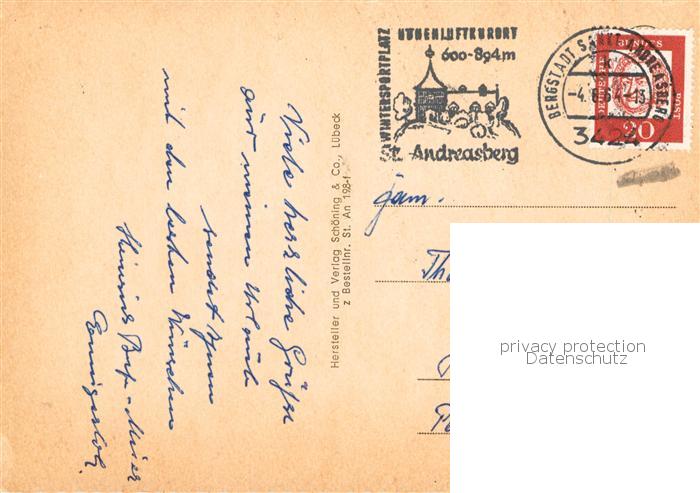 WINTERSPORTPLATZ
HÖHENLUFTKURORT
600-894m
St. Andreasberg
BERGSTADT SANKT ANDREASBERG
3424
DEUTSCHE BUNDESPOST
20
Viele herzliche Grüße
aus meinem Urlaub
sendet Ihnen
mit den besten Wünschen
Heinrich
Hersteller und Verlag Schöning & Co., Lübeck
z Bestellnr. St. An 198-f
Fam.
privacy protection
Datenschutz